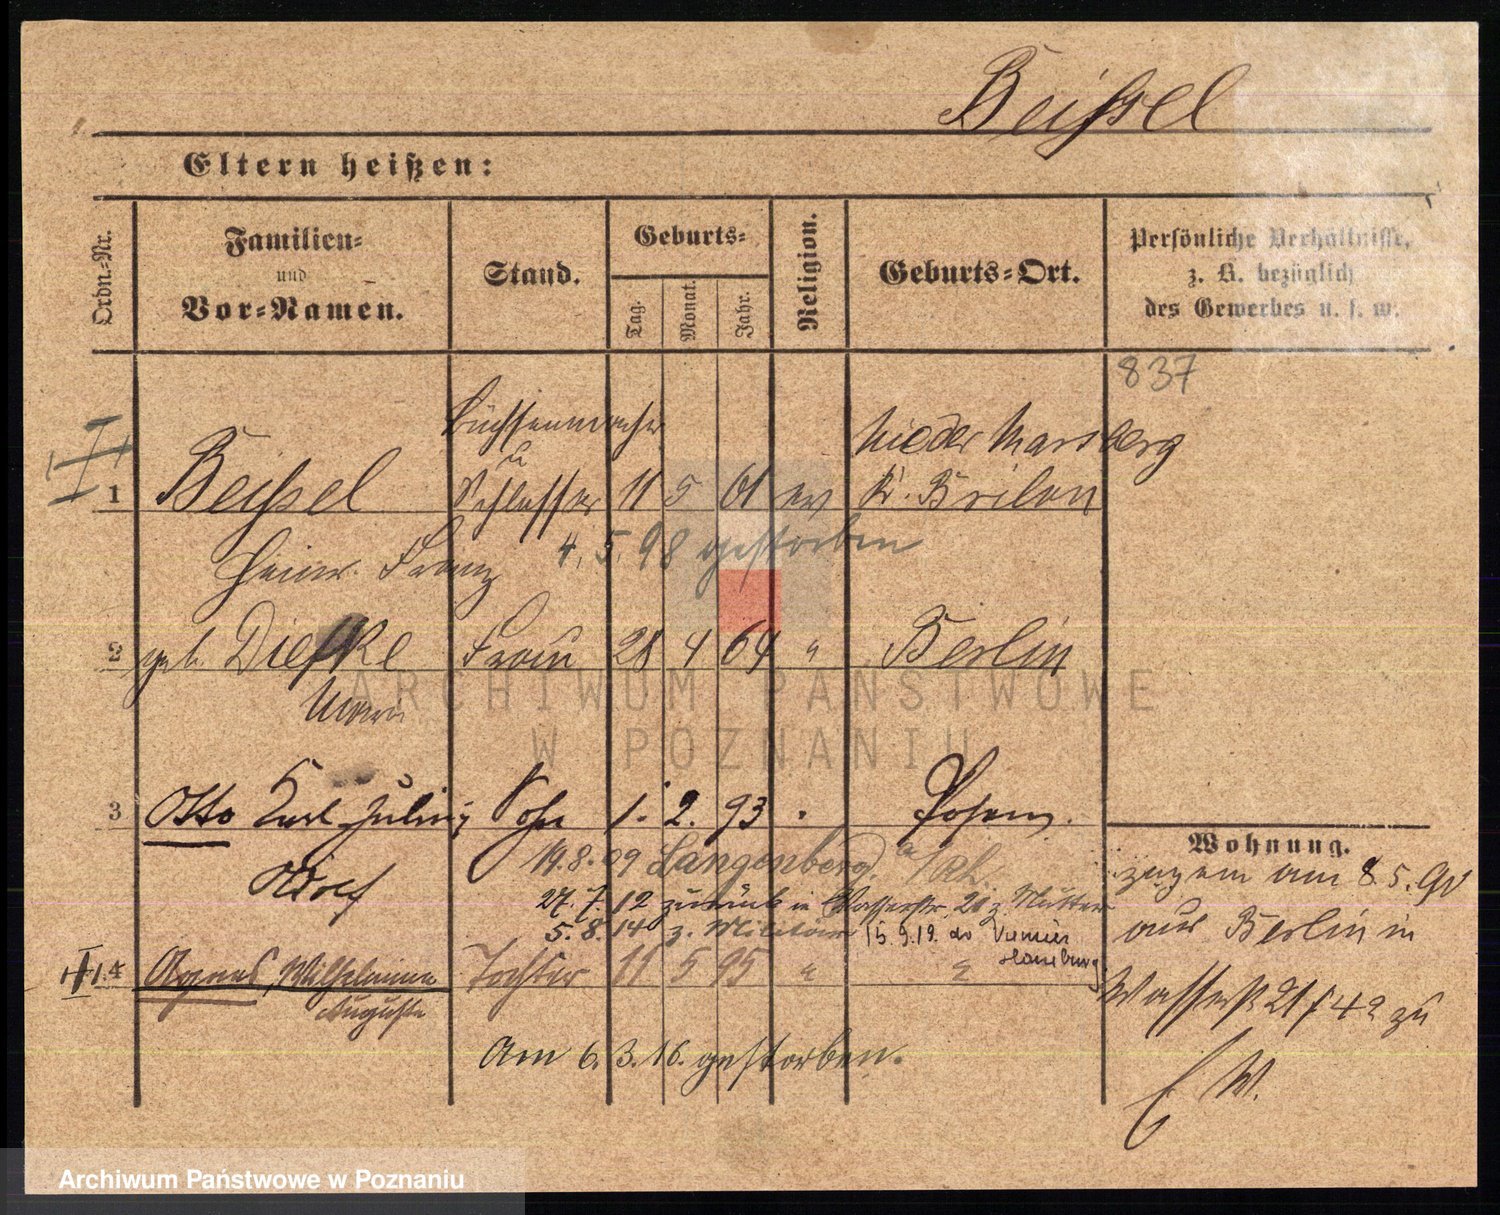 Beissel
Eltern heißen:
Ordn.-Nr.
Familien-
und
Vor-Namen.
Stand.
Geburts-
Tag.
Monat.
Jahr.
Religion.
Geburts-Ort.
Persönliche Verhältnisse,
z. B. bezüglich
des Gewerbes u. s. w.
837
Büchsenmacher
u
Nieder Marsberg
1 Beissel Schlosser 11 5 61 ev Kr. Brilon
Heinr. Franz
4. 5. 98 gestorben
2 geb. Diefke Frau 28 4 64 " Berlin
Maria
3 Otto Karl Julius Sohn 1. 2. 93 " Posen.
Adolf
19.8.09 Langenberg a/Rh.
27.7.12 zurück in Wasserstr. 21 z. Mutter
5.8.14 z. Militär 15.9.19. do
4 Agnes Wilhelmine Tochter 11 5 95 " "
Auguste
Am 6.3.16. gestorben.
Wohnung.
zugem am 8.5.90
aus Berlin in
Wasserst 21 f 42 zu
E W.
ARCHIWUM PAŃSTWOWE
W POZNANIU
Archiwum Państwowe w Poznaniu